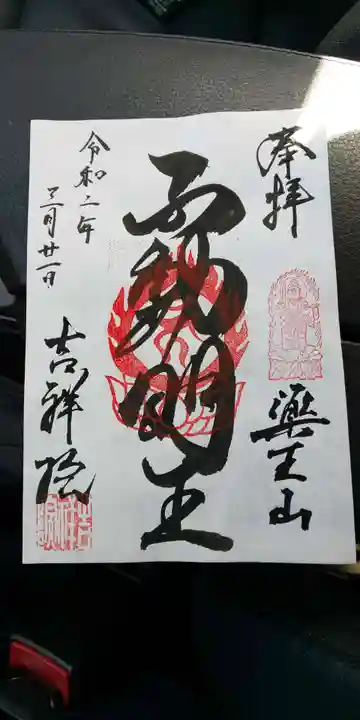 奉拝
薬王山
不動明王
令和二年
三月廿一日
吉祥院
吉祥院